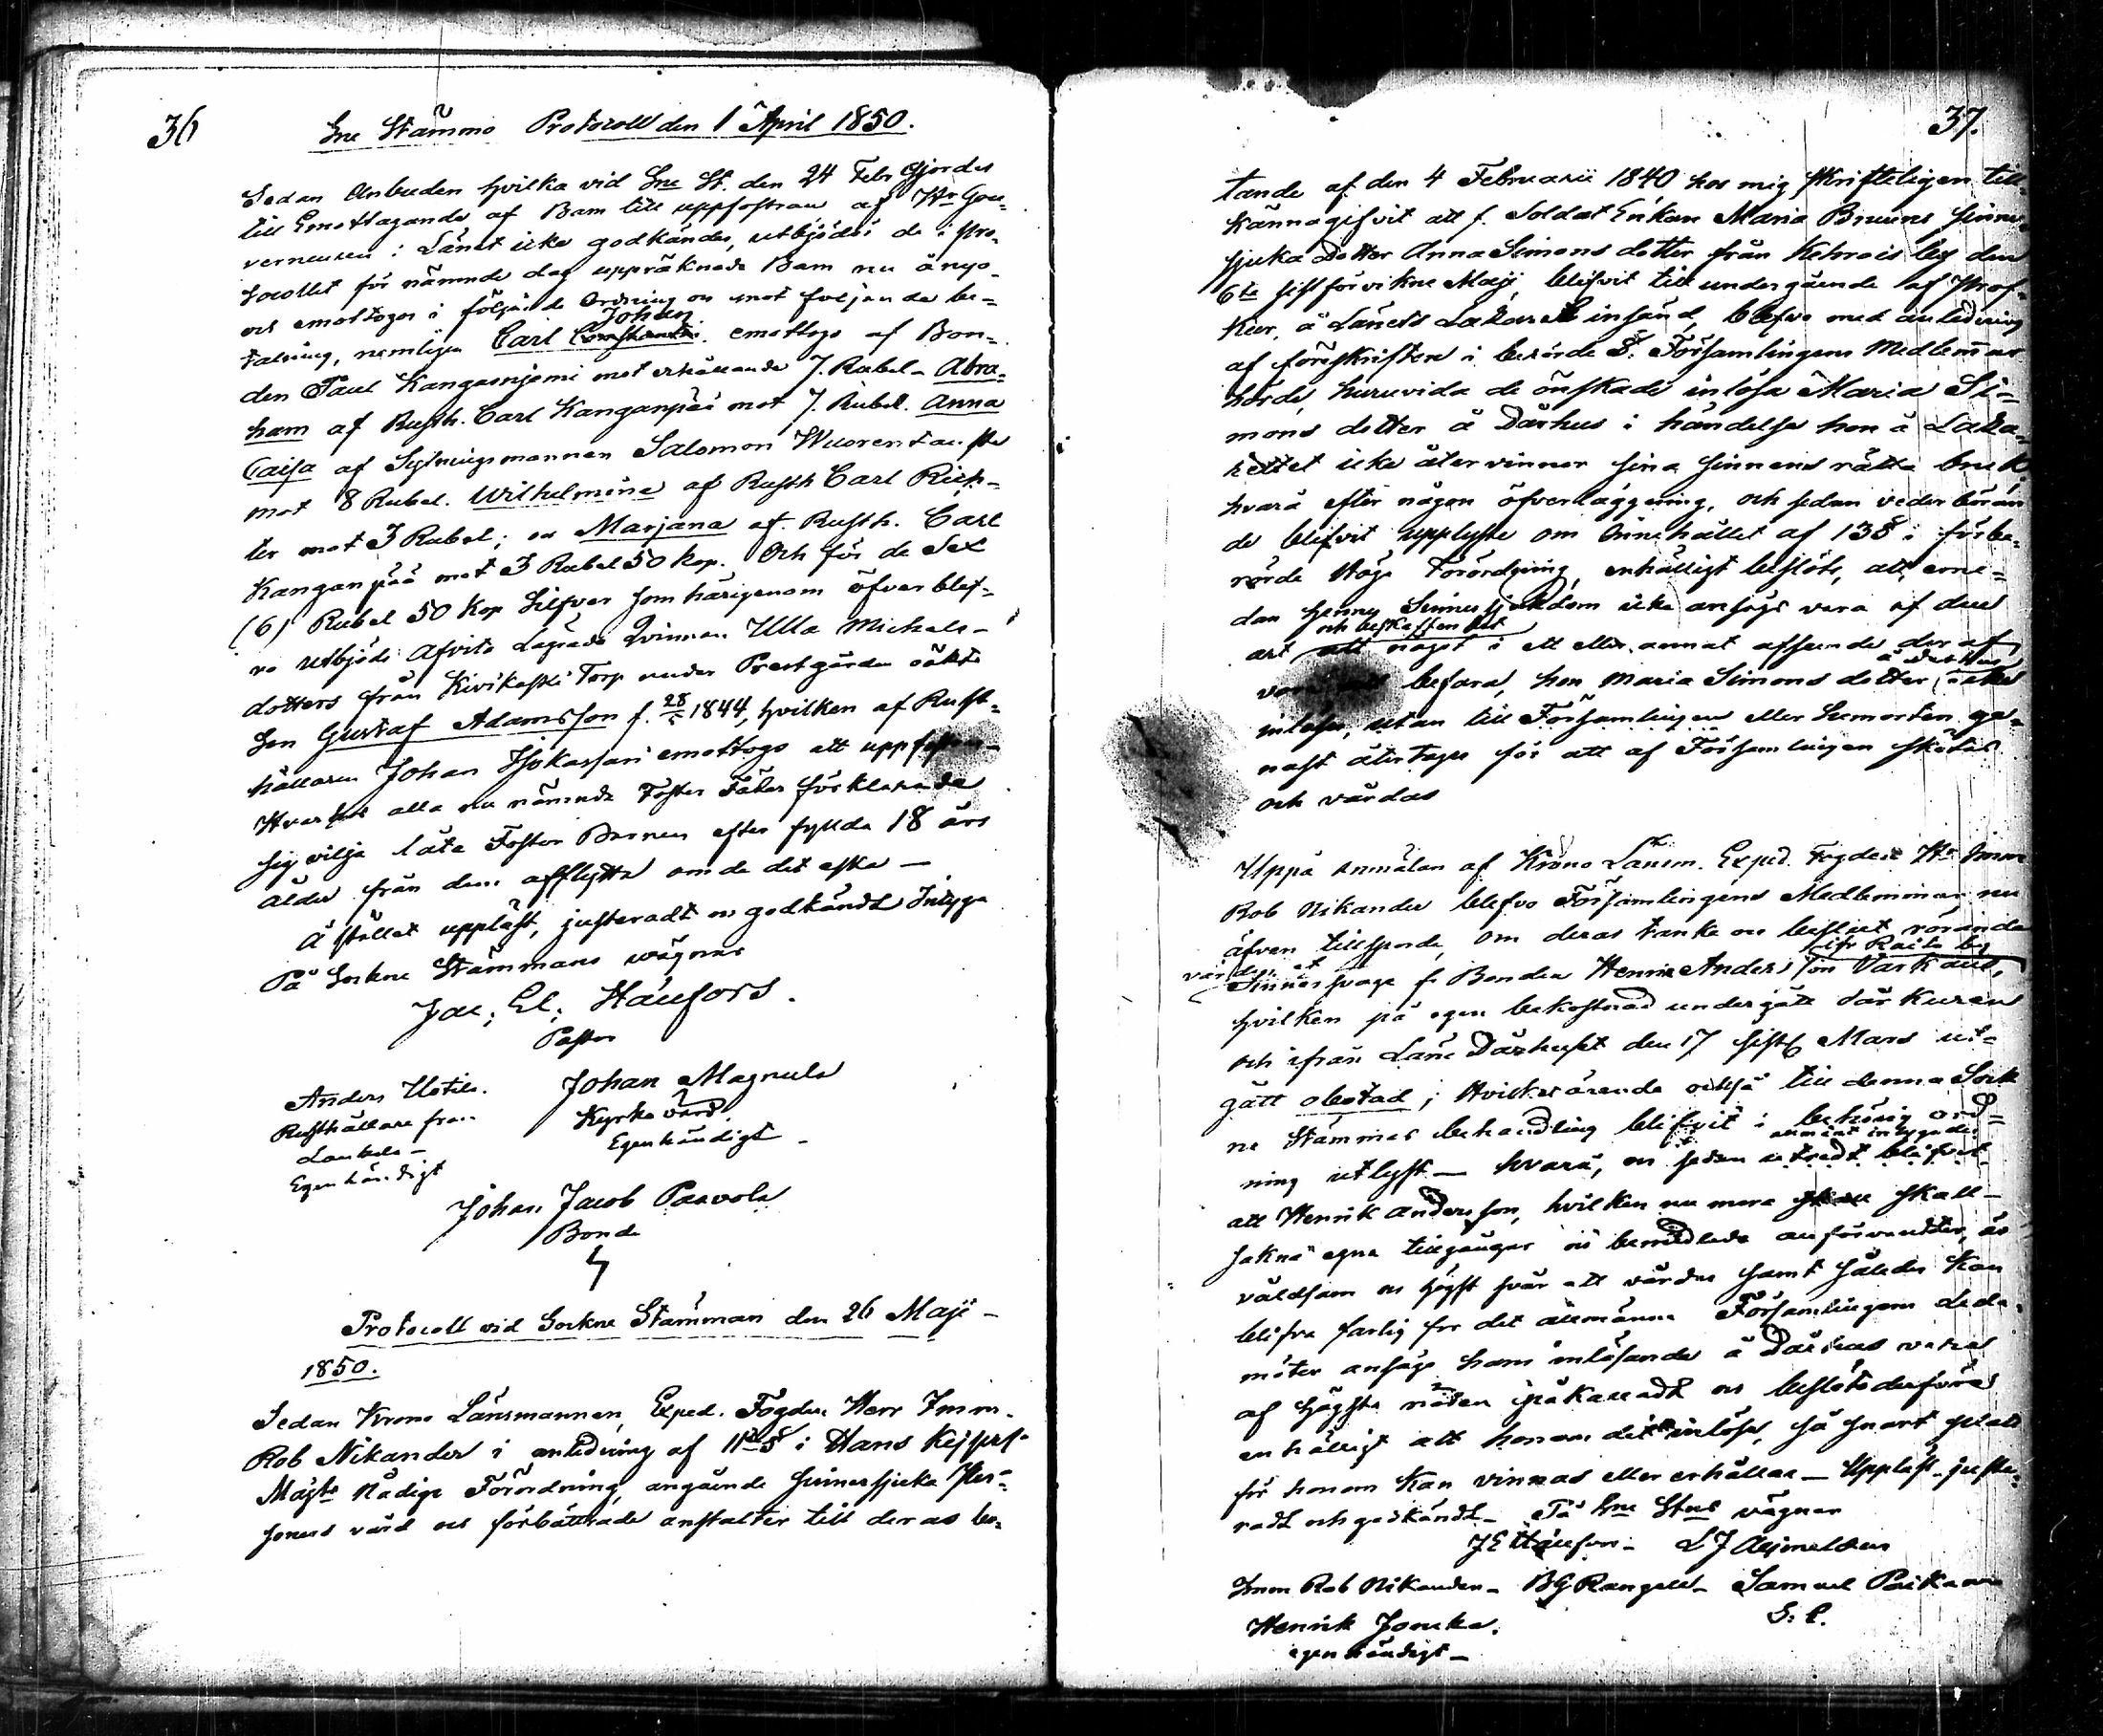 36
Sne Stämmo Protocoll den 1 April 1850.
Sedan Anbuden hvilka vid Sne St. den 24 Febr gjordes
till Emottagande af Barn till uppfostran af Hr Gou-
verneuren i Länet icke godkändes, utbjödos de i Pro-
tocollet för nämnde dag uppräknade Barn nu ånyo
och emottogos i följande Ordning och mot följande be-
Johan
talning, nemligen Carl emottogs af Bon-
den Paul Kangasnjemi mot erhållande 7. Rubel - Abra-
ham af Rusth. Carl Kanganpää mot 7. Rubel. Anna
Caisa af Sexmansmannen Salomon
mot 8 Rubel. Wilhelmina af Rusth Carl Rich-
ter mot 3 Rubel; och Marjana af Rusth. Carl
Kanganpää mot 3 Rubel 50 kop. Och för de Sex
(6) Rubel 50 Kop Silfver som härigenom öfver blef-
vo utbjöds afvita Lägrade Qvinnan Ulla Michels-
dotters från Kivikoski Torp under Prestgården oäkta
Son Gustaf Adamsson f. 28/5 1844, hvilken af Rust-
hållaren Johan emottogs att uppfostra -
Hvarhos alla nu nämnde Foster Fäder förklarade
sig vilja låta Foster Barnen efter fyllda 18 års
ålder från dem afflytta om de det äska —
Å stället uppläst, justeradt och godkändt Intyga
På Sockne Stämmans wägnar
Jac; El; Hänfors.
Pastor
Anders Uotila. Johan Magnula
Rusthållare från Kyrko värd
Laukola - Egenhändigt -
Egenhändigt
Johan Jacob Paavola
Bonde
Protocoll vid Sockne Stämman den 26 Maji -
1850.
Sedan Krono Länsmannen, Exped. Fogden Herr Imm.
Rob Nikander i anledning af 11 § i Hans Kejserl.
Majts Nådiga Förordning, angående sinnessjuka Per-
soners vård och förbättrade anstalter till deras be-
37.
tande af den 4 Februarii 1840 hos mig skrifteligen till
kännagifvit att f. Soldat Enkan Maria Bruuns sinnes-
sjuka Dotter Anna Simons dotter från Kehrois by den
6te sistförvikne Maji, blifvit till undergående af Prof-
Kur, å Länets Lazarett insänd, blefvo med anledning
af föreskriften i berörde §. Församlingens Medlemmar
hörde, huruvida de önskade inlösa Maria Si-
mons dotter å Dårhus i händelse hon å Laza-
rettet icke återvinner sina sinnens rätta bruk
hvarå efter någon öfverläggning, och sedan vederböran
de blifvit upplyste om Innehållet af 13 § i förbe-
rörde Höga Förordning, enhälligt beslöts, att eme-
dan hennes Sinnessjukdom icke ansågs vara af den
och beskaffenhet
art att något i ett eller annat afseende deraf
å dårhus
vore att befara, hon Maria Simons dotter icke
inlöses, utan till Församlingen eller hemorten ge-
nast återtages för att af Församlingen skötas
och vårdas
Uppå anmälan af Krono Länsm. Exped. Fogden Hr Imm
Rob Nikander blefvo Församlingens Medlemmar nu
äfven tillsporde, om deras tanke och beslut rörande
vården af ifr Raito by
Sinnessvage f. Bonden Henric Anders son Varkaus,
hvilken på egen bekostnad undergått Dår Kuren
och ifrån Läns Dårhuset den 17 sistl Mars ut-
gått obotad; Hvilket ärende också till denna Sock
ne Stämmas behandling blifvit i behörig ord-
allmänt intygades
ning utlyst — hvarå, och sedan utredt blifvit
att Henrik Andersson, hvilken nu mera skall
sakna egna tillgångar och bemedlade anförvandter, är
våldsam och högst svår att vårda samt således kan
blifva farlig för det allmänna Församlingens Leda-
möter ansågo hans inlösande å Dårhus vara
af högsta nöden påkalladt och beslöto derföre
enhälligt att honom dit inlösa, så snart plats
för honom kan vinnas eller erhållas — Uppläst - juste-
radt och godkändt - På Sne Stns vägnar
J E Hänfors - L J Aejmelæus
Imm Rob Nikander - B G Rangell - Samuel Paikan
Henrik Joncka. S. C.
egenhändigt —